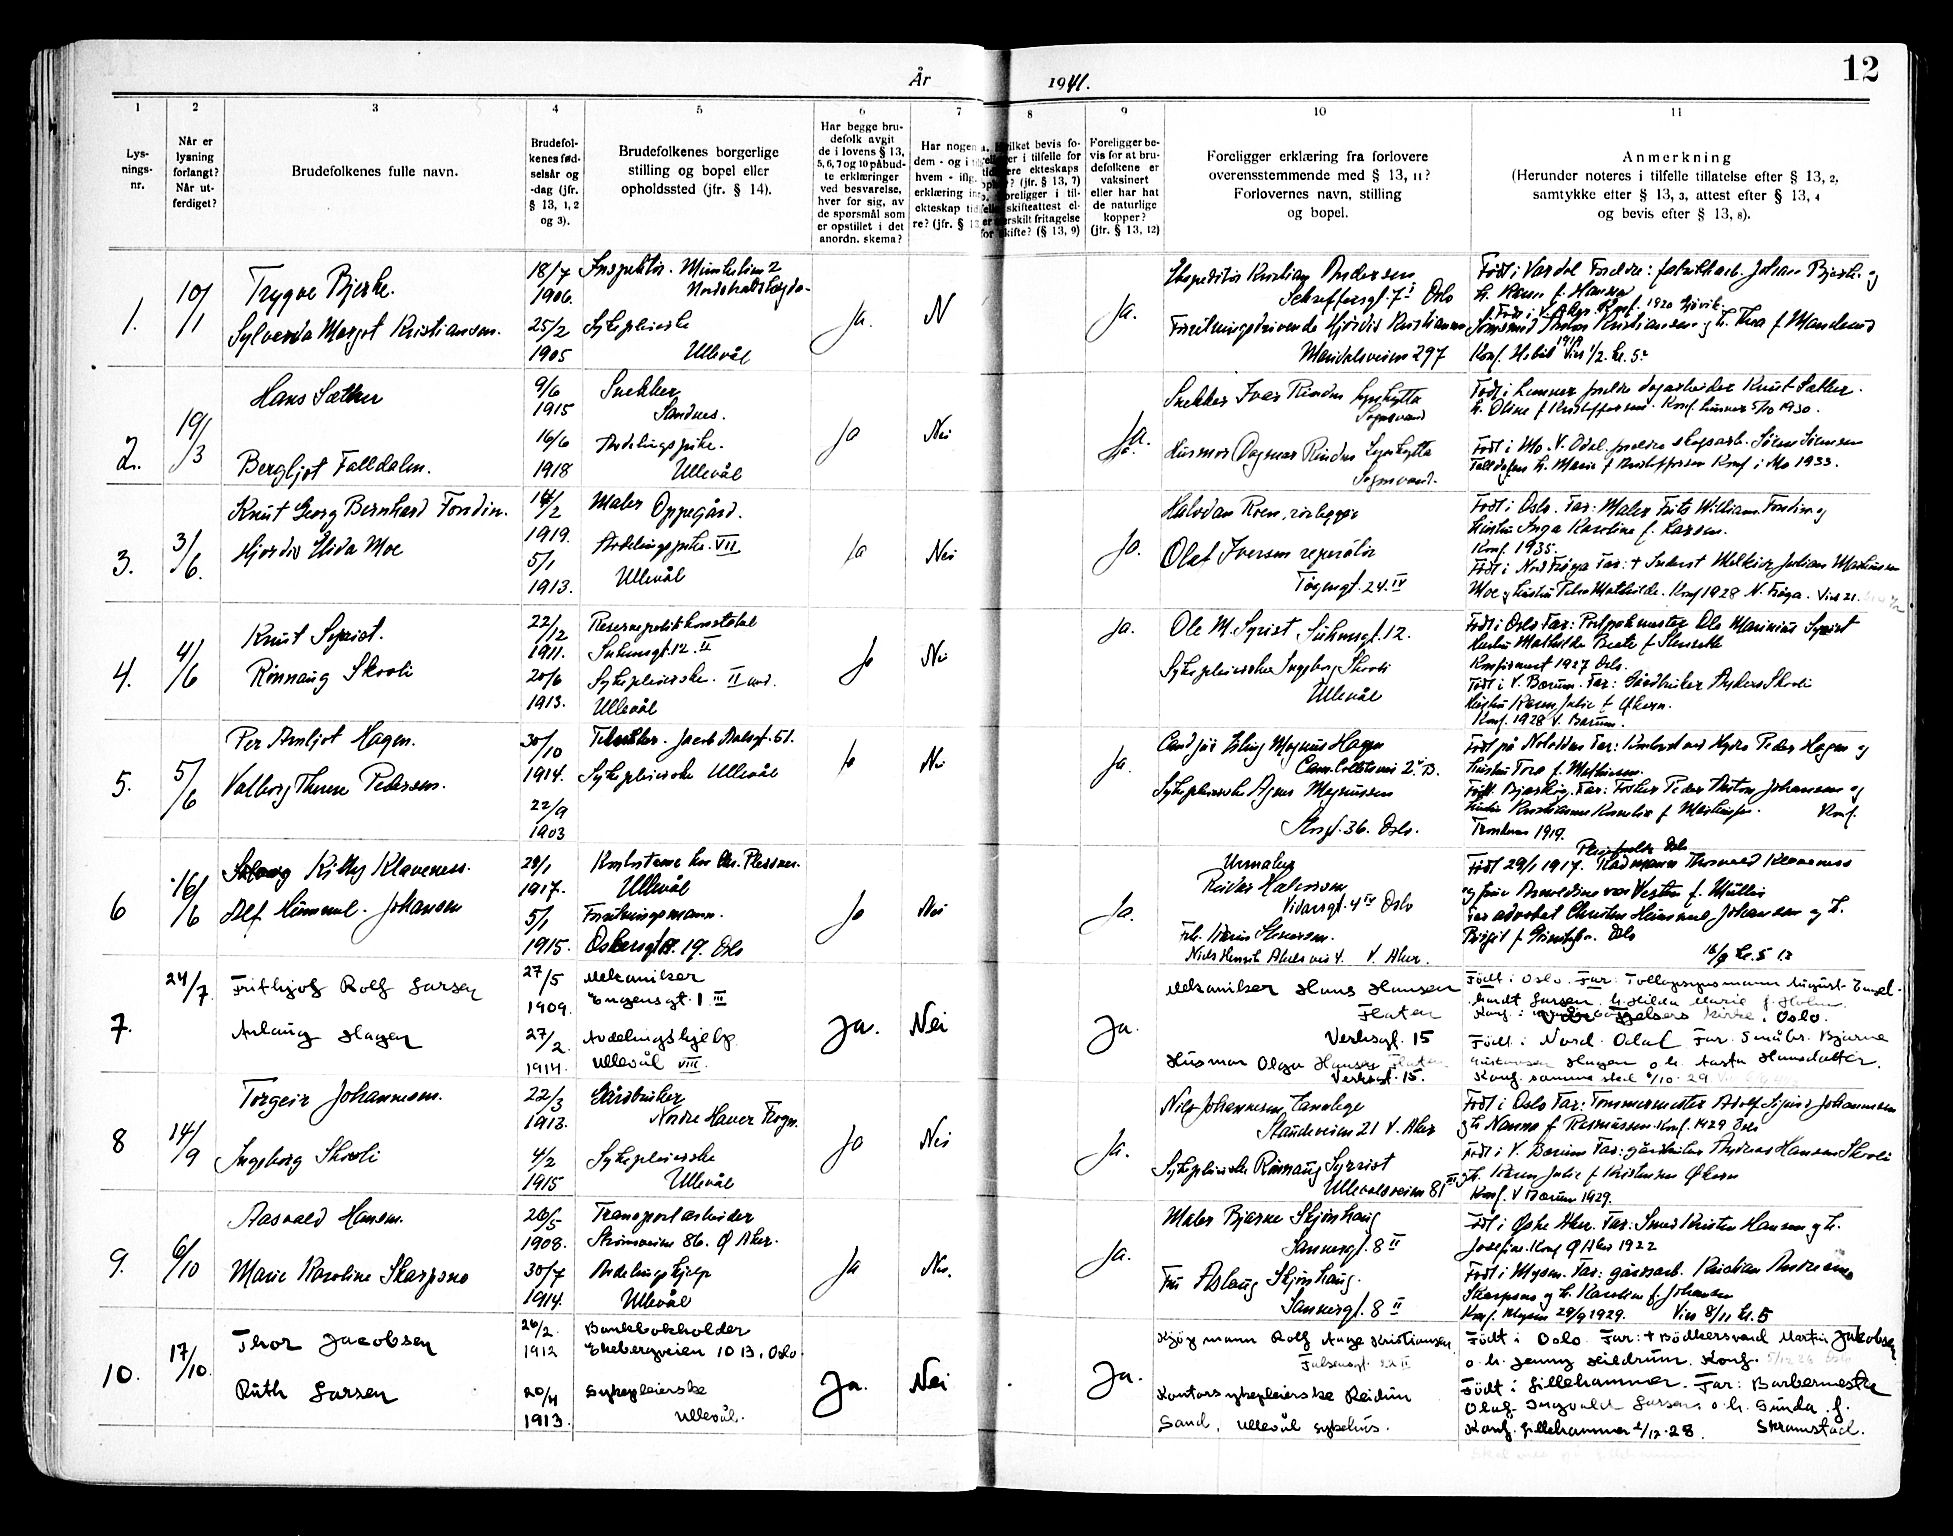 År
1941.
12
1
2
3
4
5
6
7
8
9
10
11
Lys-
nings-
nr.
Når er
lysning
forlangt?
Når ut-
ferdiget?
Brudefolkenes fulle navn.
Brudefol-
kenes fød-
selsår og
-dag (jfr.
§ 13, 1, 2
og 3).
Brudefolkenes borgerlige
stilling og bopel eller
opholdssted (jfr. § 14).
Har begge bru-
defolk avgit
de i lovens § 13,
5, 6, 7 og 10 påbud-
te erklæringer
ved besvarelse,
hver for sig, av
de spørsmål som
er opstillet i det
anordn. skema?
Har nogen
dem - og i
hvem - iflg.
erklæring
ekteskap
re? (jfr. § 13
ilket bevis fo-
i tilfelle for
ekteskaps
? (jfr. § 13, 7)
oreligger i til-
skifteattest el-
erskilt fritagelse
for skifte? (§ 13, 9)
Foreligger be-
vis for at bru-
defolkene er
vaksinert
eller har hat
de naturlige
kopper?
(jfr. § 13, 12)
Foreligger erklæring fra forlovere
overensstemmende med § 13, 11?
Forlovernes navn, stilling
og bopel.
Anmerkning
(Herunder noteres i tilfelle tillatelse efter § 13, 2,
samtykke efter § 13, 3, attest efter § 13, 4
og bevis efter § 13, 8).
1.
10/1
Trygve Bjerke.
Sylverda Margot Kristiansen.
18/7
1906.
25/2
1905
Inspektør. Munkelien 2
Sykepleierske
Ullevål
Ja.
N
Ja.
Ekspeditør Kristian Andersen
Schæffersgt. 7 I Oslo
Forretningsdrivende Hjørdis Kristiansen
Maridalsveien 297
Født i Vardal Foreldre: fabrikkarb. Johan Bjerke og
h. Karen f. Hansen
Født i V. Aker. Konf. 1920 Gjøvik.
2.
19/3
Hans Sæther
Bergljot Falldalen.
9/6
1915
16/6
1918
Snekker
Sandnes.
Avdelingspike.
Ullevål
Ja
Nei
Ja.
Snekker Ivar Rindan
Sognsvand
Husmor Dagmar Rindan
Sognsvand.
Født i Lunner foreldre dagarbeider Knut Sæther.
h. Oline f Kristoffersen. Konf. Lunner 5/10 1930.
Født i Mo. V. Odal. foreldre skogsarb. Søren Sørensen
Falldalen h. Marie f Kristoffersen Konf i Mo 1933.
3.
3/6.
Knut Georg Bernhard Fondin.
Hjørdis Elida Moe
14/2
1919.
5/1
1913.
Maler Oppegård.
Avdelingspike. VII
Ullevål
Ja
Nei
Ja.
Halvdan Roen, rørlegger
Olaf Iversen reperatør
Tøyengt. 24. IV
Født i Oslo. Far: Maler Fritz William Fondin og
hustru Inga Karoline f. Larsen.
Konf. 1935.
Moe og hustru Petra Mathilde. Konf 1928 N. Frøya.
4.
4/6
Knut Syrist.
Rønnaug Skooli
22/12
1911.
20/6
1913.
Reservepolitikonstabel
Suhmsgt. 12. II
Sykepleierske. II avd.
Ullevål
Ja
Nei
Ja.
Ole M. Syrist Suhmsgt. 12.
Sykepleierske Ingeborg Skooli
Ullevål
Født i Oslo Far: Portpokmester Ole Marinius Syrist
Konfirmert 1927 Oslo.
Født i V. Bærum. Far: Gårdbruker Anders Skooli
hustru Karen Julie f Økern.
Konf. 1928 V. Bærum.
5.
5/6
Per Arnljot Hagen.
Valborg Therese Pedersen.
30/10
1914.
22/9
1903
Tekniker. Jacob Aalsgt. 51.
Sykepleierske Ullevål
Ja
Nei
Ja.
Cand jur Erling Magnus Hagen
Cam. Colletts vei 2. B.
Sykepleierske Agnes Magnussen
36. Oslo.
Født på Notodden Far: Kontorist ved Hydro Peder Hagen og
hustru Tora f. Mathisen.
Konf.
Trondenes 1919.
6
16/6
Kitty Klaveness.
Alf Himmel-Johansen
29/1
1917.
5/1
1915.
Ullevål
Forretningsmann.
Oscarsgt. 19. Oslo
Ja
Nei
Ja.
Urmaker
Reidar Halvorsen
Vidarsgt. 4 IV Oslo
Niels Henrik Abels vei 4. V. Aker.
Født 29/1 1917. Rådmann Thorvald Klaveness
Far advokat Christen Himmel Johansen og h.
Oslo
7.
24/7
Frithjof Rolf Larsen
Anlaug Hagen
27/5
1909.
27/2.
1914.
Mekaniker
Engensgt. 1 III
Avdelingshjelp
Ullevål VIII.
Ja.
Nei
Ja.
Mekaniker Hans Hansen
Flaten
Verksgt. 15
Husmor Olga Hansen Flaten
Verksgt. 15.
Født i Oslo. Far: Tollopsynsmann August Engel-
hardt Larsen. h. Hilda Marie f. Holm.
kirke. Oslo.
Født i Nord. Odal Far: Småbr. Bjarne
Gustavsen Hagen o. h. Aasta Hansdatter.
Konf. samme sted 6/10-29
8
14/9
Torgeir Johannesen.
Ingeborg Skooli
22/3
1913.
4/2
1915
Gårdbruker
Nordre Haver Frogn.
Sykepleierske
Ullevål
Ja
Nei
Ja.
Nils Johannesen, Tannlege
Staudeveien 21 V. Aker
Sykepleierske Rønnaug Syrist
Ullevålsveien 81 III
Født i Oslo Far: Tømmermester Adolf Sigurd Johannesen
og h Nanna f Rasmussen. Konf. 1929 Oslo
Født i V. Bærum Far: gårdbruker Anders Hansen Skooli
h. Karen Julie f Kristensen Økern
Konf. V Bærum 1929.
9.
6/10
Aasvald Hansen.
Marie Karoline Skarpsno
26/5
1908.
30/7
1914.
Transportarbeider
Strømsveien 86. Ø Aker.
Avdelingshjelp
Ullevål
Ja
Nei.
Ja.
Maler Bjarne Skjønhaug
Sannergt. 8 II
Fru Aslaug Skjønhaug.
Sannergt. 8 II
Født i Østre Aker. Far: Smed Kristen Hansen og h.
Josefine. Konf Ø Aker 1922
Født i Mysen. Far: gårdsarb. Kristian Andreas
Skarpsno og h. Karoline f. Johansen
Konf. Mysen 29/9 1929. Vies 8/11 kl. 5
10.
17/10.
Thor Jacobsen
Ruth Larsen
26/2.
1912
20/4
1913.
Bankbokholder
Ekebergveien 10 B. Oslo
Sykepleierske
Ullevål.
Ja.
Nei
Ja.
Kjøpmann Rolf Aage Kristiansen
Falsensgt. 22 II
Kontorsykepleierske Reidun
Sand, Ullevål sykehus.
Født i Oslo. Far: + Bødkersvend Martin Jakobsen
o. h. Jenny Hildrum. Konf. 5/12 26 Oslo
Født i Lillehammer. Far: Barbermester
Oluf Ingvald Larsen o. h. Gunda f.
Konf. Lillehammer 2/12-28. Skramstad.